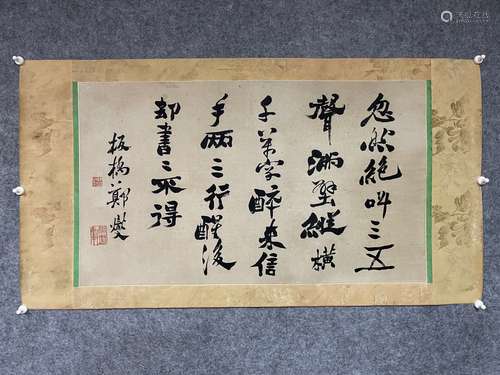 忽然絕叫三五
聲滿壁縱橫
千萬字醉来信
手兩三行醒後
却書書不得
板橋鄭燮